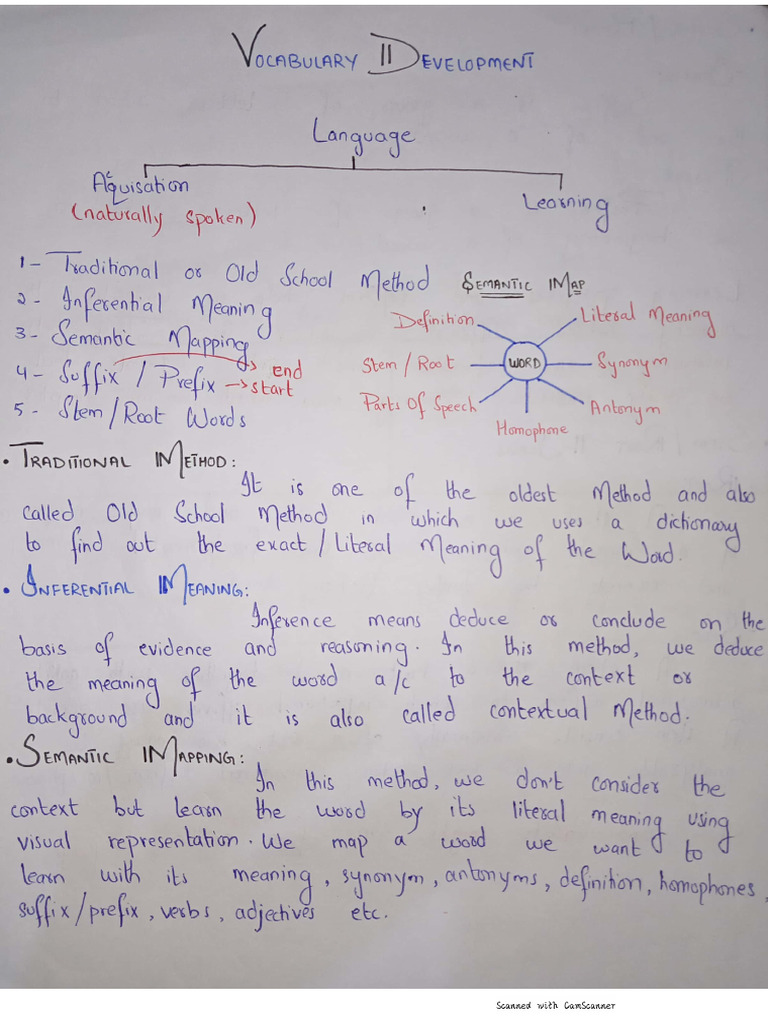 VOCABULARY DEVELOPMENT
Language
Acquisation
(naturally spoken)
Learning
1- Traditional or Old School Method
2- Inferential Meaning
3- Semantic Mapping
4- Suffix / Prefix → start
→ end
5- Stem/Root Words
SEMANTIC MAP
Definition
Literal Meaning
Stem / Root
WORD
Synonym
Parts Of Speech
Antonym
Homophone
• TRADITIONAL METHOD:
It is one of the oldest Method and also
called Old School Method in which we uses a dictionary
to find out the exact / Literal Meaning of the Word.
• INFERENTIAL MEANING:
Inference means deduce or conclude on the
basis of evidence and reasoning. In this method, we deduce
the meaning of the word a/c to the context or
background and it is also called contextual Method.
• SEMANTIC MAPPING:
In this method, we don't consider the
context but learn the word by its literal meaning using
visual representation. We map a word we want to
learn with its meaning, synonym, antonyms, definition, homophones,
suffix/prefix, verbs, adjectives etc.
Scanned with CamScanner